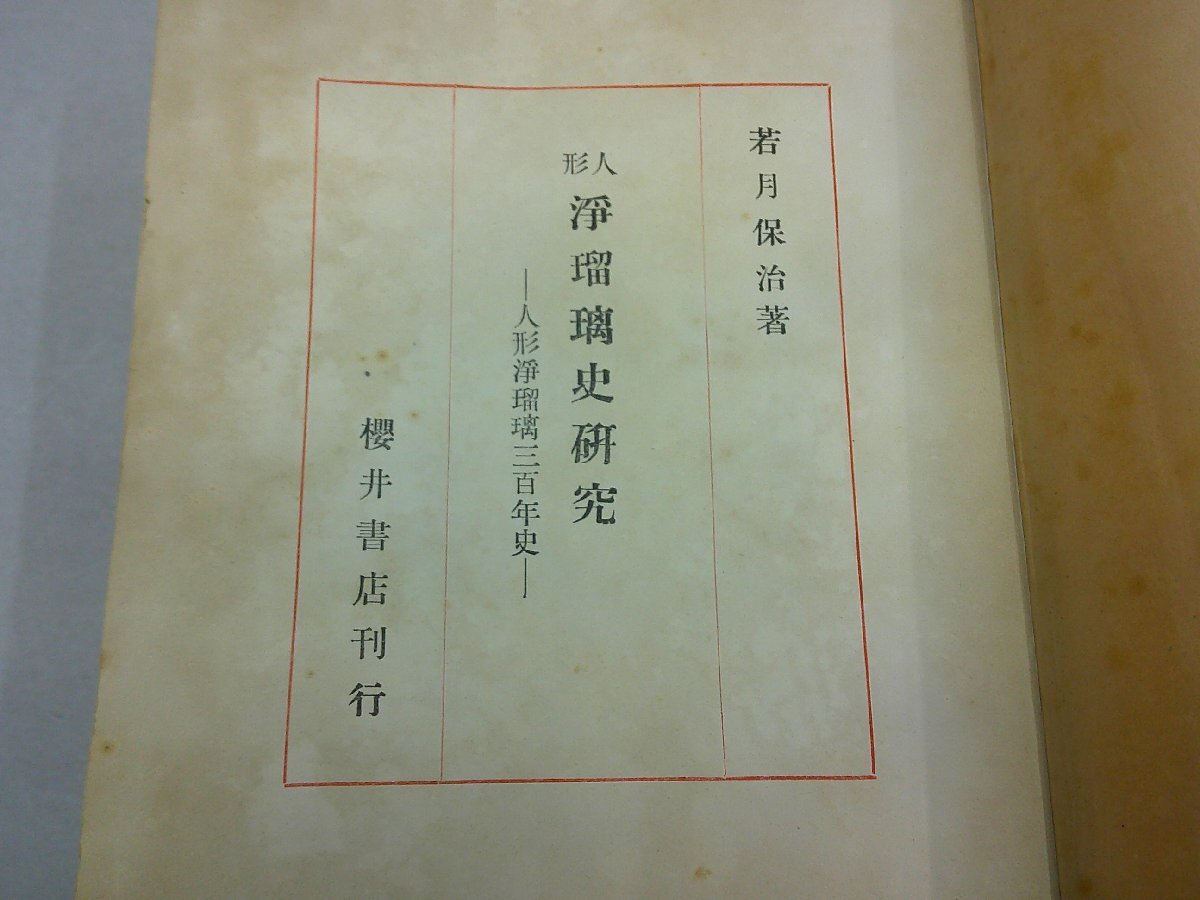 若月保治著
人形
淨瑠璃史硏究
―人形淨瑠璃三百年史―
櫻井書店刊行